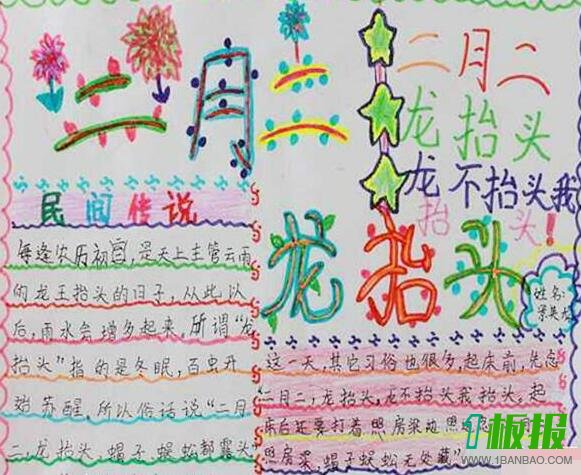 二月二
二月二
龙抬头
龙不抬头我
抬头！
龙抬头
姓名：
民间传说
每逢农历初, 是天上主管云雨
的龙王抬头的日子，从此以
后，雨水会增多起来，所谓“龙
抬头”指的是冬眠，百虫开
始苏醒。所以俗话说“二月
二，龙抬头，蝎子、蜈蚣都露头
这一天，其它习俗也很多，起床前，先念
二月二，龙抬头，龙不抬头我抬头。起
床后还要打着 照房梁边 照
照房梁，蝎子蜈蚣无处藏”
1板报
WWW.1BANBAO.COM